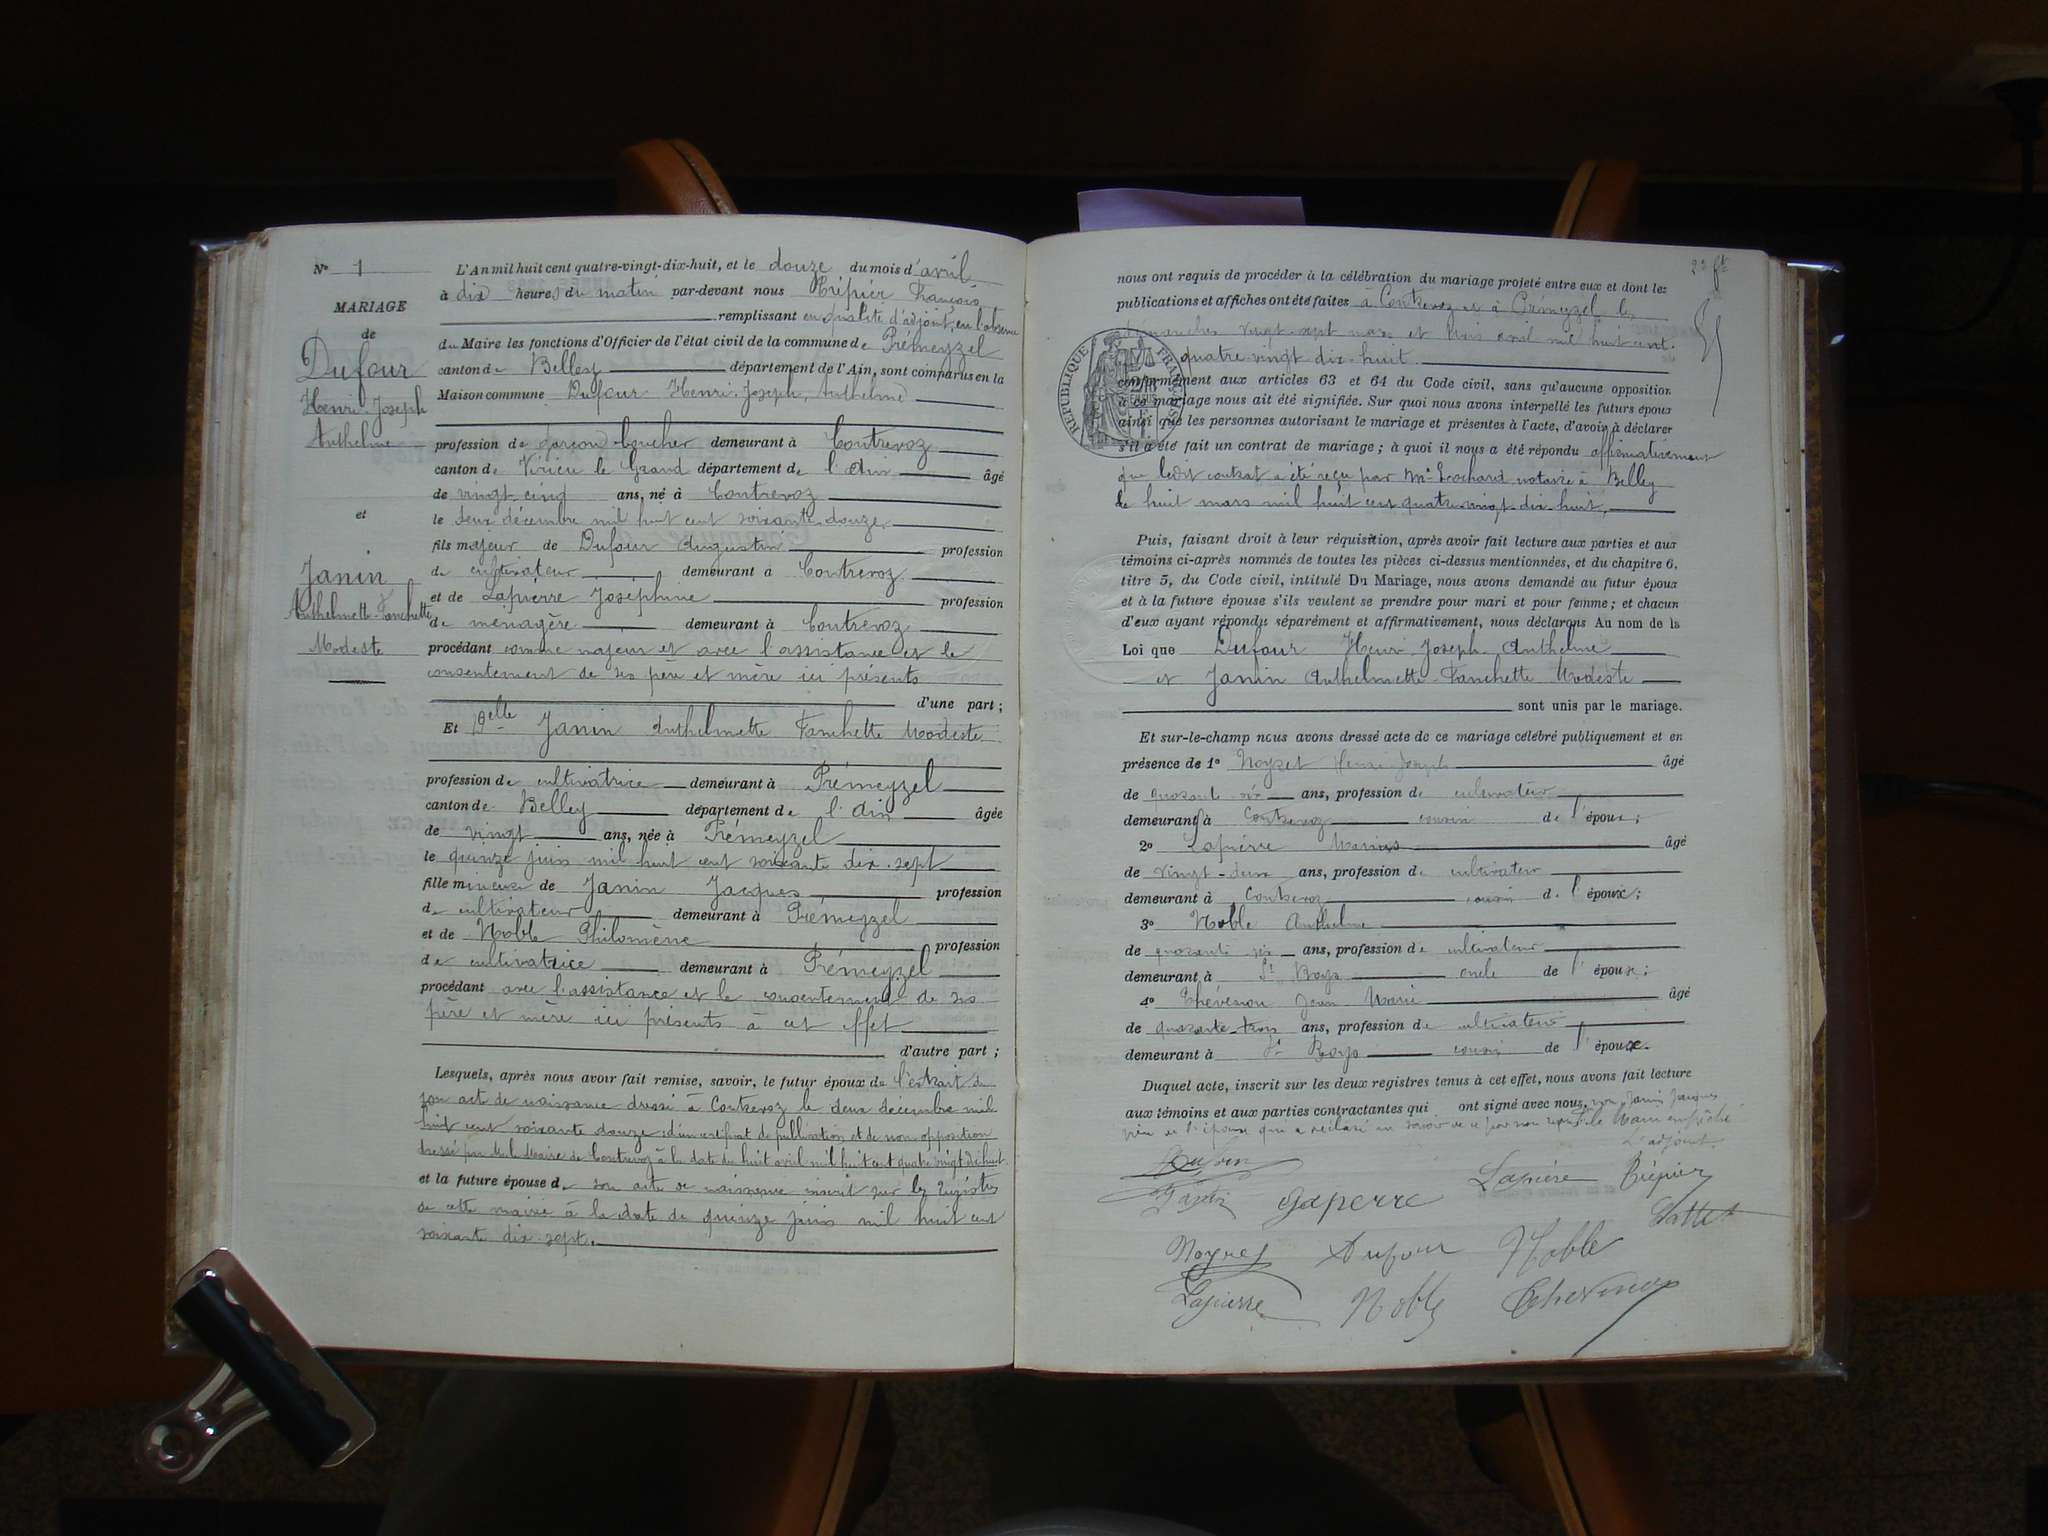 N° 1
MARIAGE
de
Dufour
Henri-Joseph
Anthelme
et
Janin
Anthelmette-Fanchette
Modeste
L'An mil huit cent quatre-vingt-dix-huit, et le douze du mois d'avril
à dix heures du matin par-devant nous Trépier François
remplissant en qualité d'adjoint, en l'absence
du Maire les fonctions d'Officier de l'état civil de la commune de Prémeyzel
canton de Belley département de l'Ain, sont comparus en la
Maison commune Dufour Henri-Joseph, Anthelme
profession de garçon boucher demeurant à Contrevoz
canton de Virieu le Grand département de l'Ain âgé
de vingt-cinq ans, né à Contrevoz
le deux décembre mil huit cent soixante-douze
fils majeur de Dufour Augustin profession
de cultivateur demeurant à Contrevoz
et de Lapierre Joséphine profession
de ménagère demeurant à Contrevoz
procédant comme majeur et avec l'assistance et le
consentement de ses père et mère ici présents
d'une part ;
Et Delle Janin Anthelmette Fanchette Modeste
profession de cultivatrice demeurant à Prémeyzel
canton de Belley département de l'Ain âgée
de vingt ans, née à Prémeyzel
le quinze juin mil huit cent soixante dix-sept
fille mineure de Janin Jacques profession
de cultivateur demeurant à Prémeyzel
et de Noble Philomène profession
de cultivatrice demeurant à Prémeyzel
procédant avec l'assistance et le consentement de ses
père et mère ici présents à cet effet
d'autre part ;
Lesquels, après nous avoir fait remise, savoir, le futur époux de l'extrait de
son acte de naissance dressé à Contrevoz le deux décembre mil
huit cent soixante douze d'un certificat de publication et de non opposition
dressé par M. le Maire de Contrevoz à la date du huit avril mil huit cent quatre vingt dix huit
et la future épouse de son acte de naissance inscrit sur les registres
de cette mairie à la date du quinze juin mil huit cent
soixante dix-sept.
nous ont requis de procéder à la célébration du mariage projeté entre eux et dont les
publications et affiches ont été faites à Contrevoz et à Prémeyzel les
dimanches vingt-sept mars et trois avril mil huit cent
quatre-vingt dix-huit.
RÉPUBLIQUE FRANÇAISE
conformément aux articles 63 et 64 du Code civil, sans qu'aucune opposition
à ce mariage nous ait été signifiée. Sur quoi nous avons interpellé les futurs époux
ainsi que les personnes autorisant le mariage et présentes à l'acte, d'avoir à déclarer
s'il a été fait un contrat de mariage ; à quoi il nous a été répondu affirmativement
que ledit contrat a été reçu par Me notaire à Belley
le huit mars mil huit cent quatre-vingt-dix-huit,
Puis, faisant droit à leur réquisition, après avoir fait lecture aux parties et aux
témoins ci-après nommés de toutes les pièces ci-dessus mentionnées, et du chapitre 6,
titre 5, du Code civil, intitulé Du Mariage, nous avons demandé au futur époux
et à la future épouse s'ils veulent se prendre pour mari et pour femme ; et chacun
d'eux ayant répondu séparément et affirmativement, nous déclarons Au nom de la
Loi que Dufour Henri Joseph Anthelme
et Janin Anthelmette-Fanchette Modeste
sont unis par le mariage.
Et sur-le-champ nous avons dressé acte de ce mariage célébré publiquement et en
présence de 1° Henri Joseph âgé
de quarante six ans, profession de cultivateur
demeurant à Contrevoz cousin de l'époux ;
2° Lapierre Marius âgé
de vingt-deux ans, profession de cultivateur
demeurant à Contrevoz cousin de l'époux ;
3° Noble Anthelme
de quarante six ans, profession de cultivateur
demeurant à St Bois oncle de l'épouse ;
4° Thévenon Jean Marie âgé
de quarante-trois ans, profession de cultivateur
demeurant à St Bois cousin de l'épouse.
Duquel acte, inscrit sur les deux registres tenus à cet effet, nous avons fait lecture
aux témoins et aux parties contractantes qui ont signé avec nous, non Janin Jacques
père de l'épouse qui a déclaré ne savoir le Maire empêché
L'adjoint
Lapierre Trépier
Dufour Noble
Lapierre Noble Thevenon